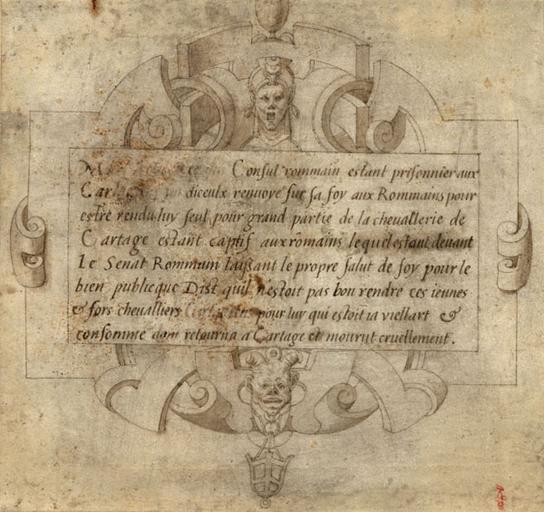 Consul rommain estant prisonnier aux
diceulx renuoye sur sa foy aux Rommains pour
estre rendu luy seul pour grand partie de la cheuallerie de
Cartage estant captif aux romains lequel estant deuant
Le Senat Rommain laissant le propre salut de soy pour le
bien publicque Dist quil nestoit pas bon rendre ces ieunes
& fors cheualliers pour luy qui estoit ia viellart &
consomme dom retourna a Cartage et mourut cruellement.